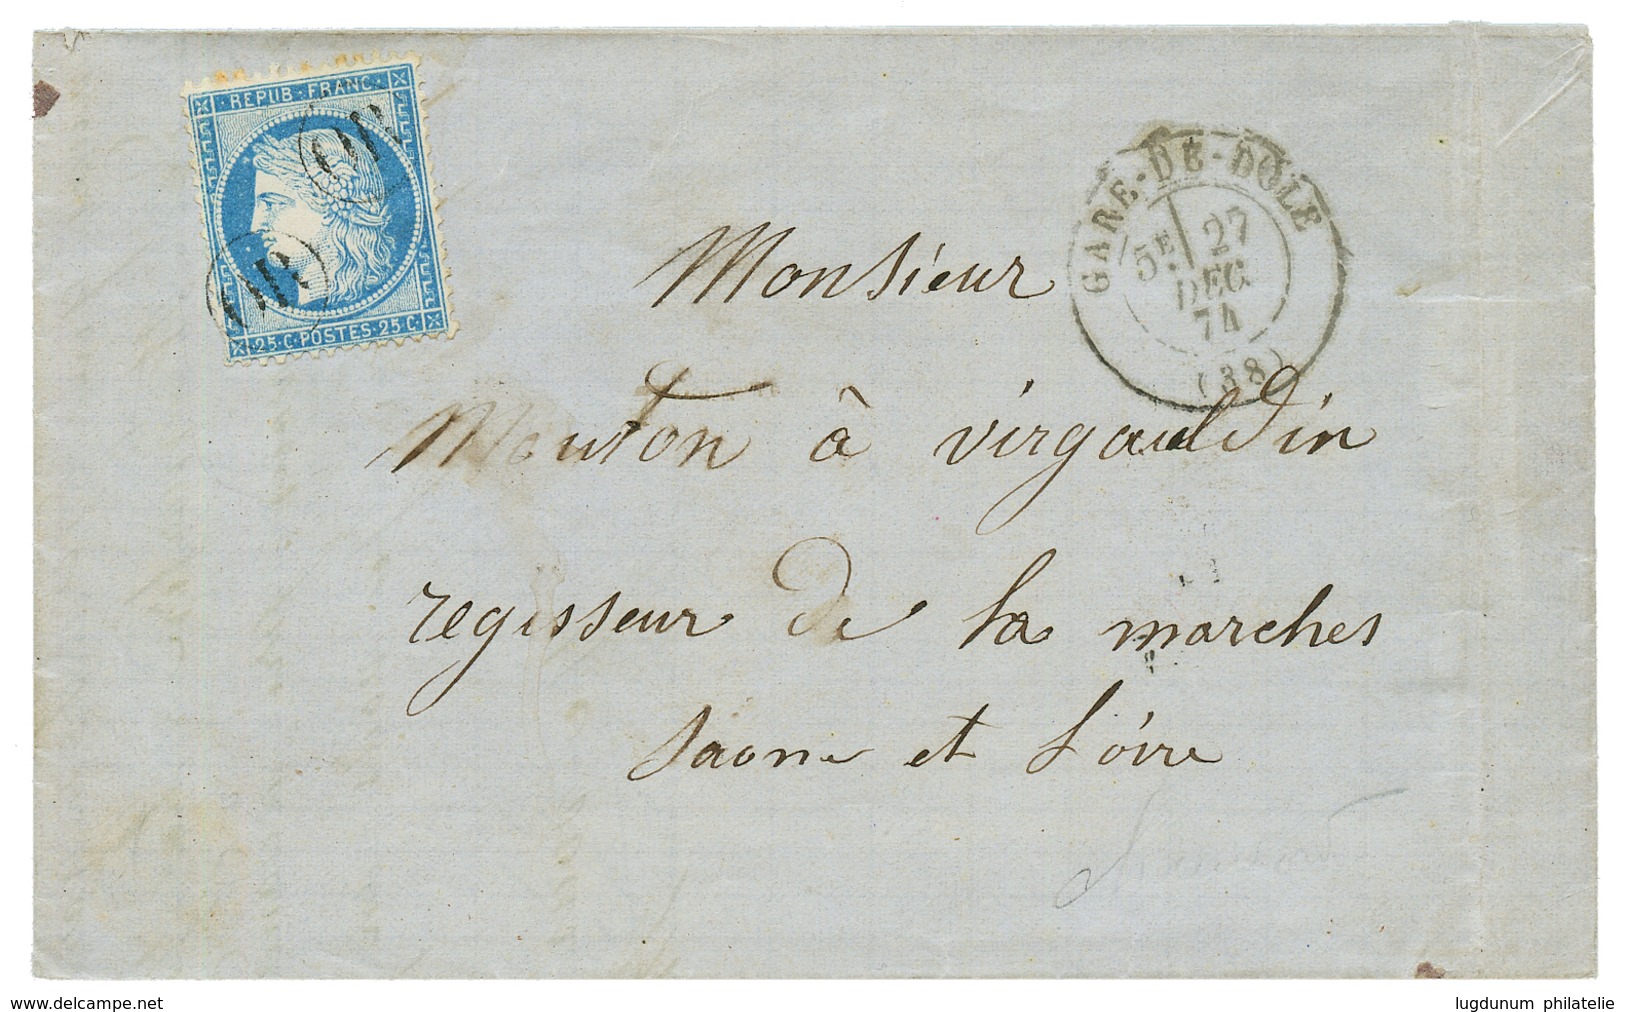 REPUB · FRANC ·
OR
OR
25 · C · POSTES · 25 · C
GARE-DE-DOLE
5E 27
DEC
74
(38)
Monsieur
Mouton à virgauldin
regisseur de la marches
saone et Loire
www.delcampe.net
lugdunum philatelie